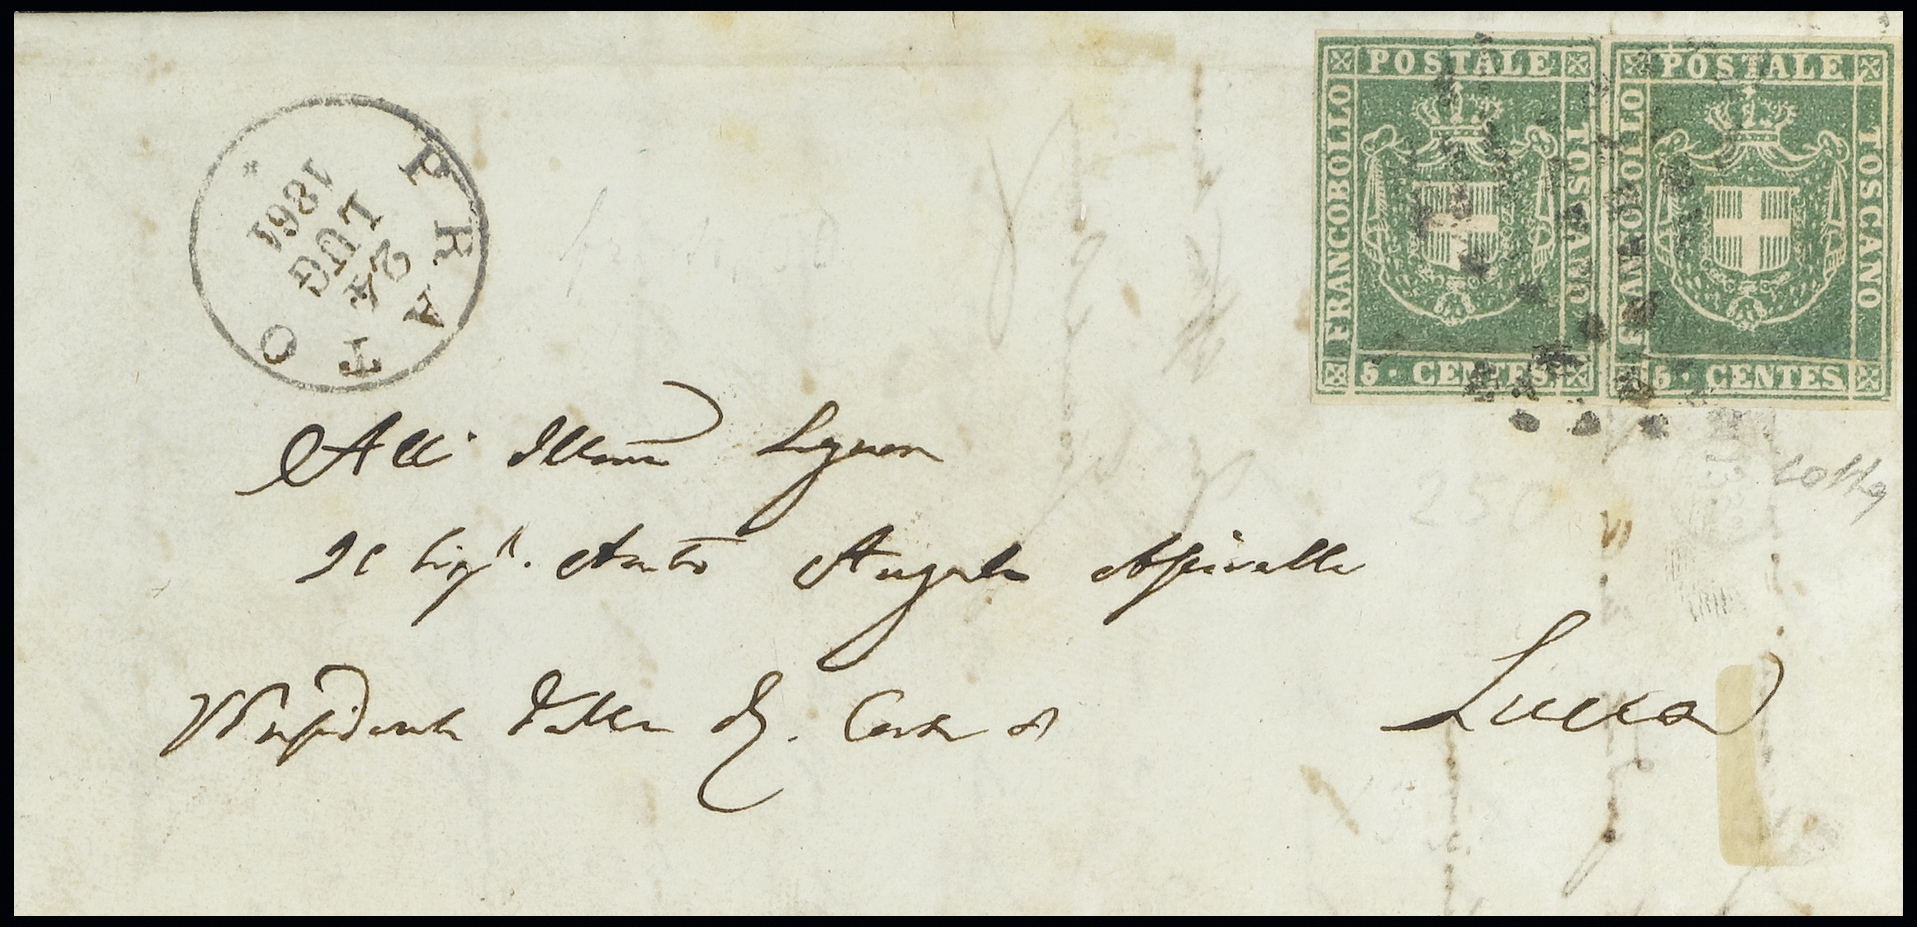 PRATO
24
LUG
1861
POSTALE
FRANCOBOLLO
TOSCANO
5 · CENTES.
POSTALE
FRANCOBOLLO
TOSCANO
5 · CENTES.
250
Alli Illmi Signori
Il Sigr. Anto Angelo
Presidente Della R. Corte di
Lucca